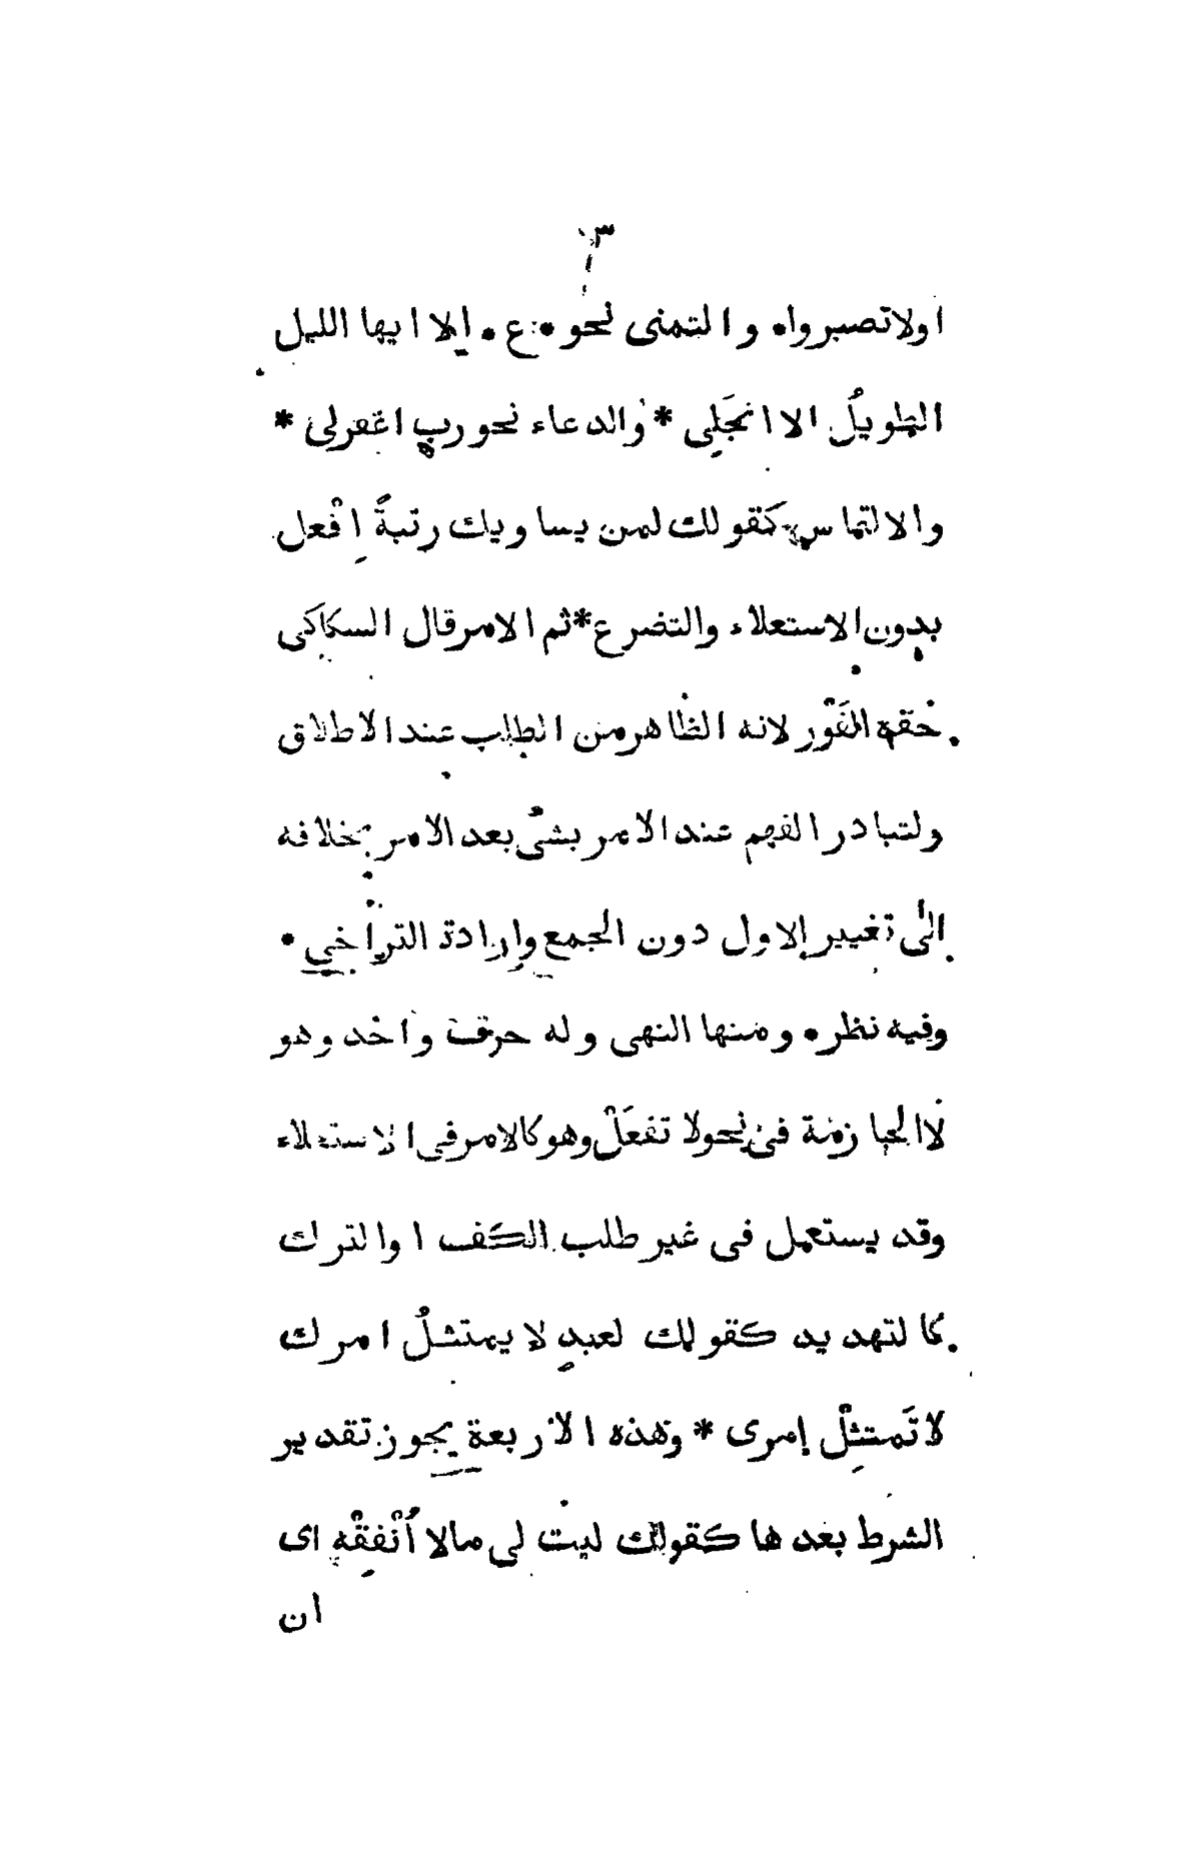 ٣
اولاتصبروا * والتمنى نحو * ع * الا ايها الليل
الطويلُ الا انجَلِى * والدعاء نحو ربِ اغفرلى *
والالتماس كقولك لمن يساويك رتبةً اِفْعل
بدون الاستعلاء والتضرع * ثم الامر قال السكاكى
حقه الفَوْر لانه الظاهر من الطلب عند الاطلاق
ولتبادر الفهم عند الامر بشئ بعد الامر بخلافه
الى تغيير الاول دون الجمع وارادة التراخى *
وفيه نظر * ومنها النهى وله حرف واحد وهو
لا الجازمة فى نحو لا تفعَلْ وهو كالامر فى الاستعلاء
وقد يستعمل فى غير طلب الكف او الترك
كالتهديد كقولك لعبدٍ لا يمتثلُ امرك
لا تَمتثِلْ امرى * وهذه الاربعة يجوز تقدير
الشرط بعدها كقولك ليت لى مالا اُنْفِقْه اى
ان